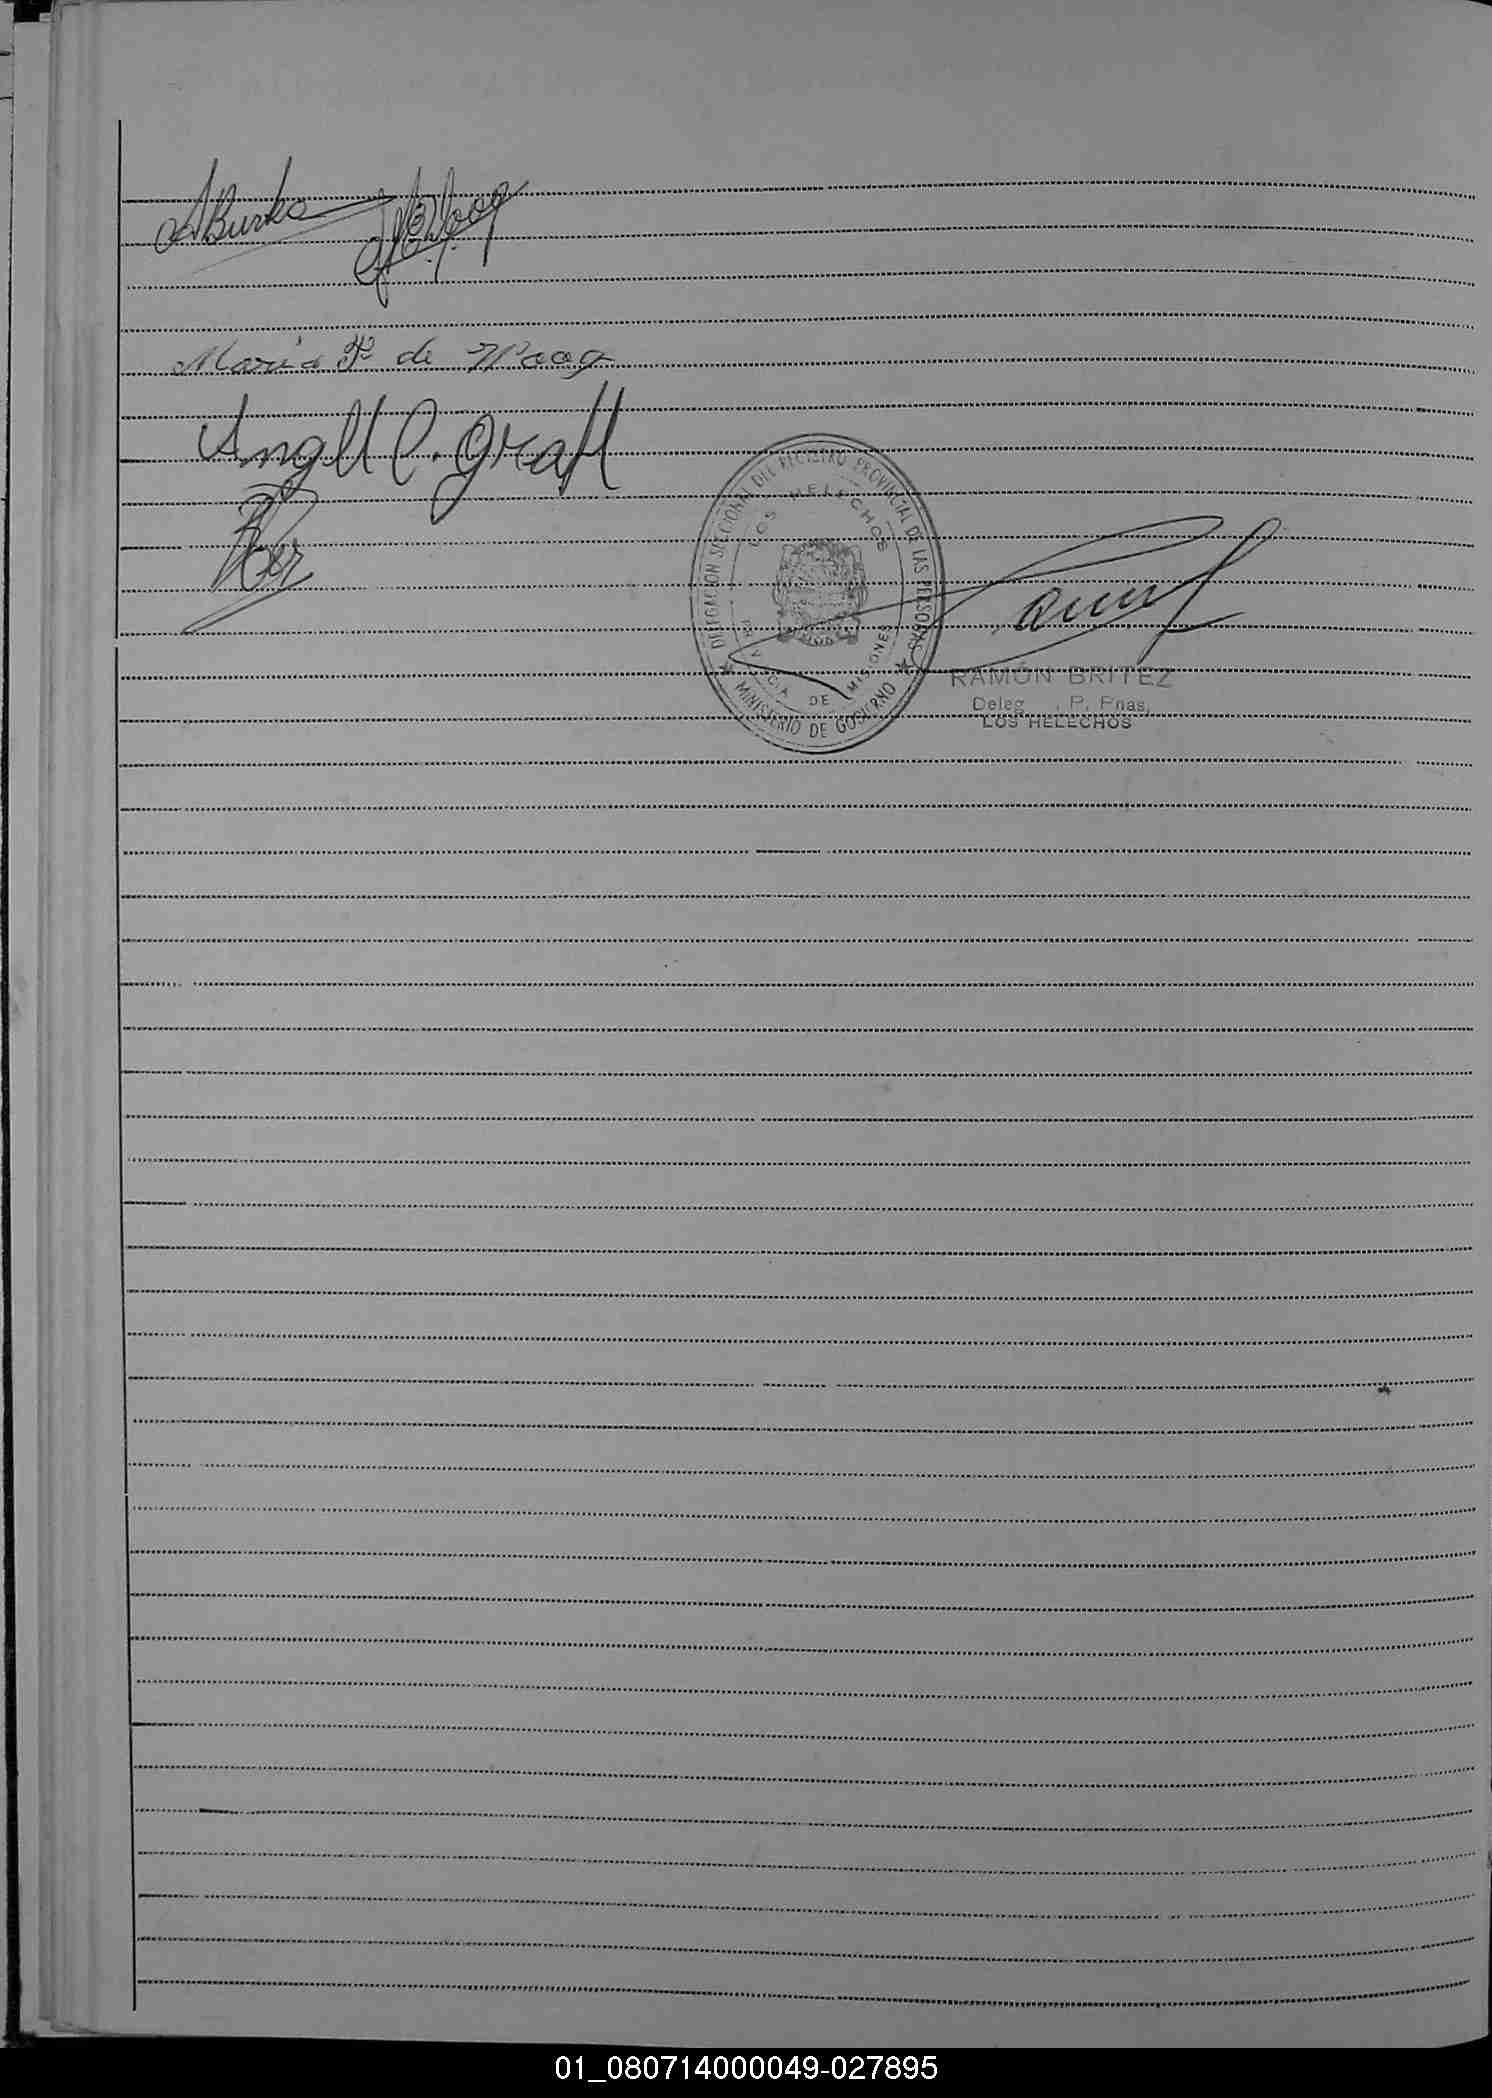 ABurke
Maria F. de Haag
Angel C. Graff
DELEGACION SECCIONAL DEL REGISTRO PROVINCIAL DE LAS PERSONAS
LOS HELECHOS
PROVINCIA DE MISIONES
MINISTERIO DE GOBIERNO
RAMÓN BRITEZ
Deleg P. Pnas.
LOS HELECHOS
01_080714000049-027895